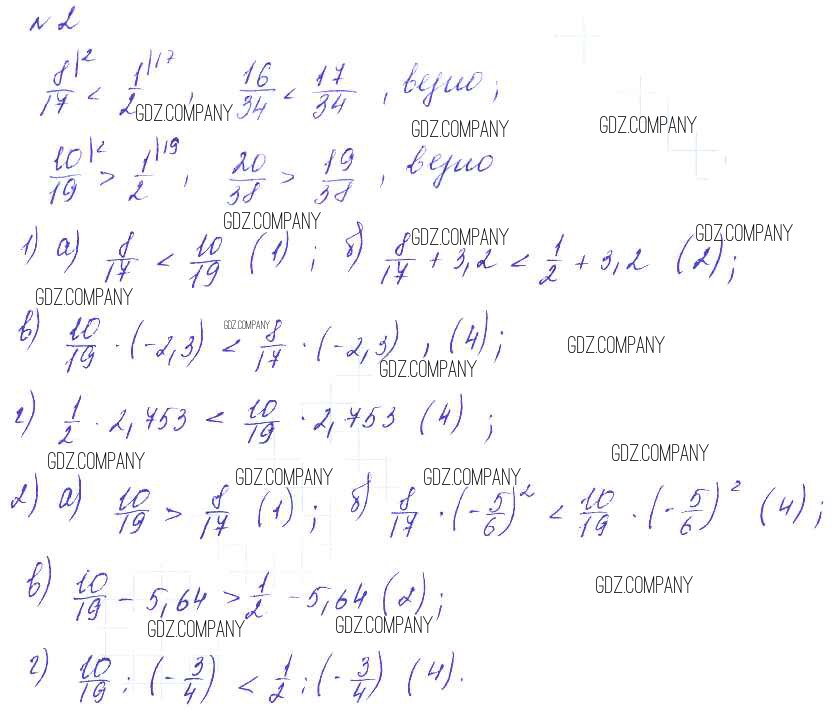 № 2
8/17 |2 < 1/2 |17 , 16/34 < 17/34 , верно ;
GDZ.COMPANY
GDZ.COMPANY GDZ.COMPANY
10/19 |2 > 1/2 |19 , 20/38 > 19/38 , верно
GDZ.COMPANY GDZ.COMPANY GDZ.COMPANY
1) а) 8/17 < 10/19 (1) ; б) 8/17 + 3,2 < 1/2 + 3,2 (2) ;
GDZ.COMPANY
в) 10/19 · (-2,3) < 8/17 · (-2,3) , (4) ;
GDZ.COMPANY GDZ.COMPANY
GDZ.COMPANY
г) 1/2 · 2,753 < 10/19 · 2,753 (4) ;
GDZ.COMPANY GDZ.COMPANY
GDZ.COMPANY GDZ.COMPANY
2) а) 10/19 > 8/17 (1) ; б) 8/17 · (-5/6)² < 10/19 · (-5/6)² (4) ;
в) 10/19 - 5,64 > 1/2 - 5,64 (2) ;
GDZ.COMPANY
GDZ.COMPANY GDZ.COMPANY
г) 10/19 : (-3/4) < 1/2 : (-3/4) (4) .